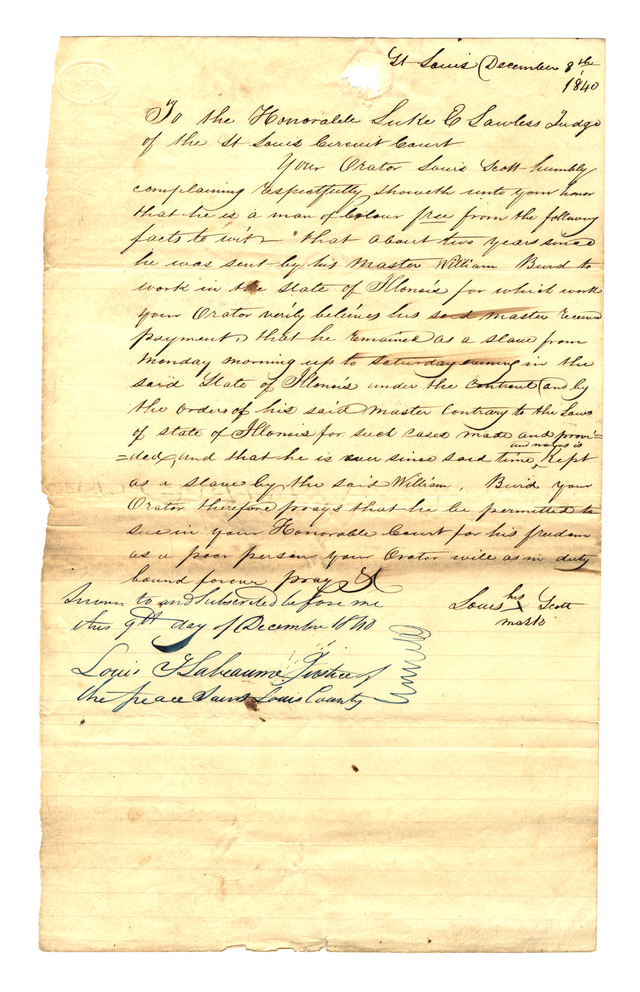 St Louis December 8th
1840
To the Honorable Luke E Lawless Judge
of the St Louis Circuit Court
Your Orator Louis Scott humbly
complaining respectfully showeth unto your honor
that he is a man of Colour free from the following
facts to wit - that about two years since
he was sent by his Master William Burd to
work in the State of Illonois for which work
your Orator verily believes his said master receive
payment, that he remained as a slave from
Monday morning up to Saturday evening in the
said State of Illonois under the Controul and by
the orders of his said Master Contrary to the Laws
of state of Illonois for such cases made and provi=
and now is
=ded, and that he is ever since said time, Kept
as a slave by the said William, Burd your
Orator therefore prays that he be permitted to
sue in your Honorable Court for his freedom
as a poor person your Orator will as in duty
bound forever pray &
Sworn to and Subscribed before me
this 9th day of December 1840
his
Louis X Scott
mark
Louis Labeaume Justice of
the peace Saint Louis County